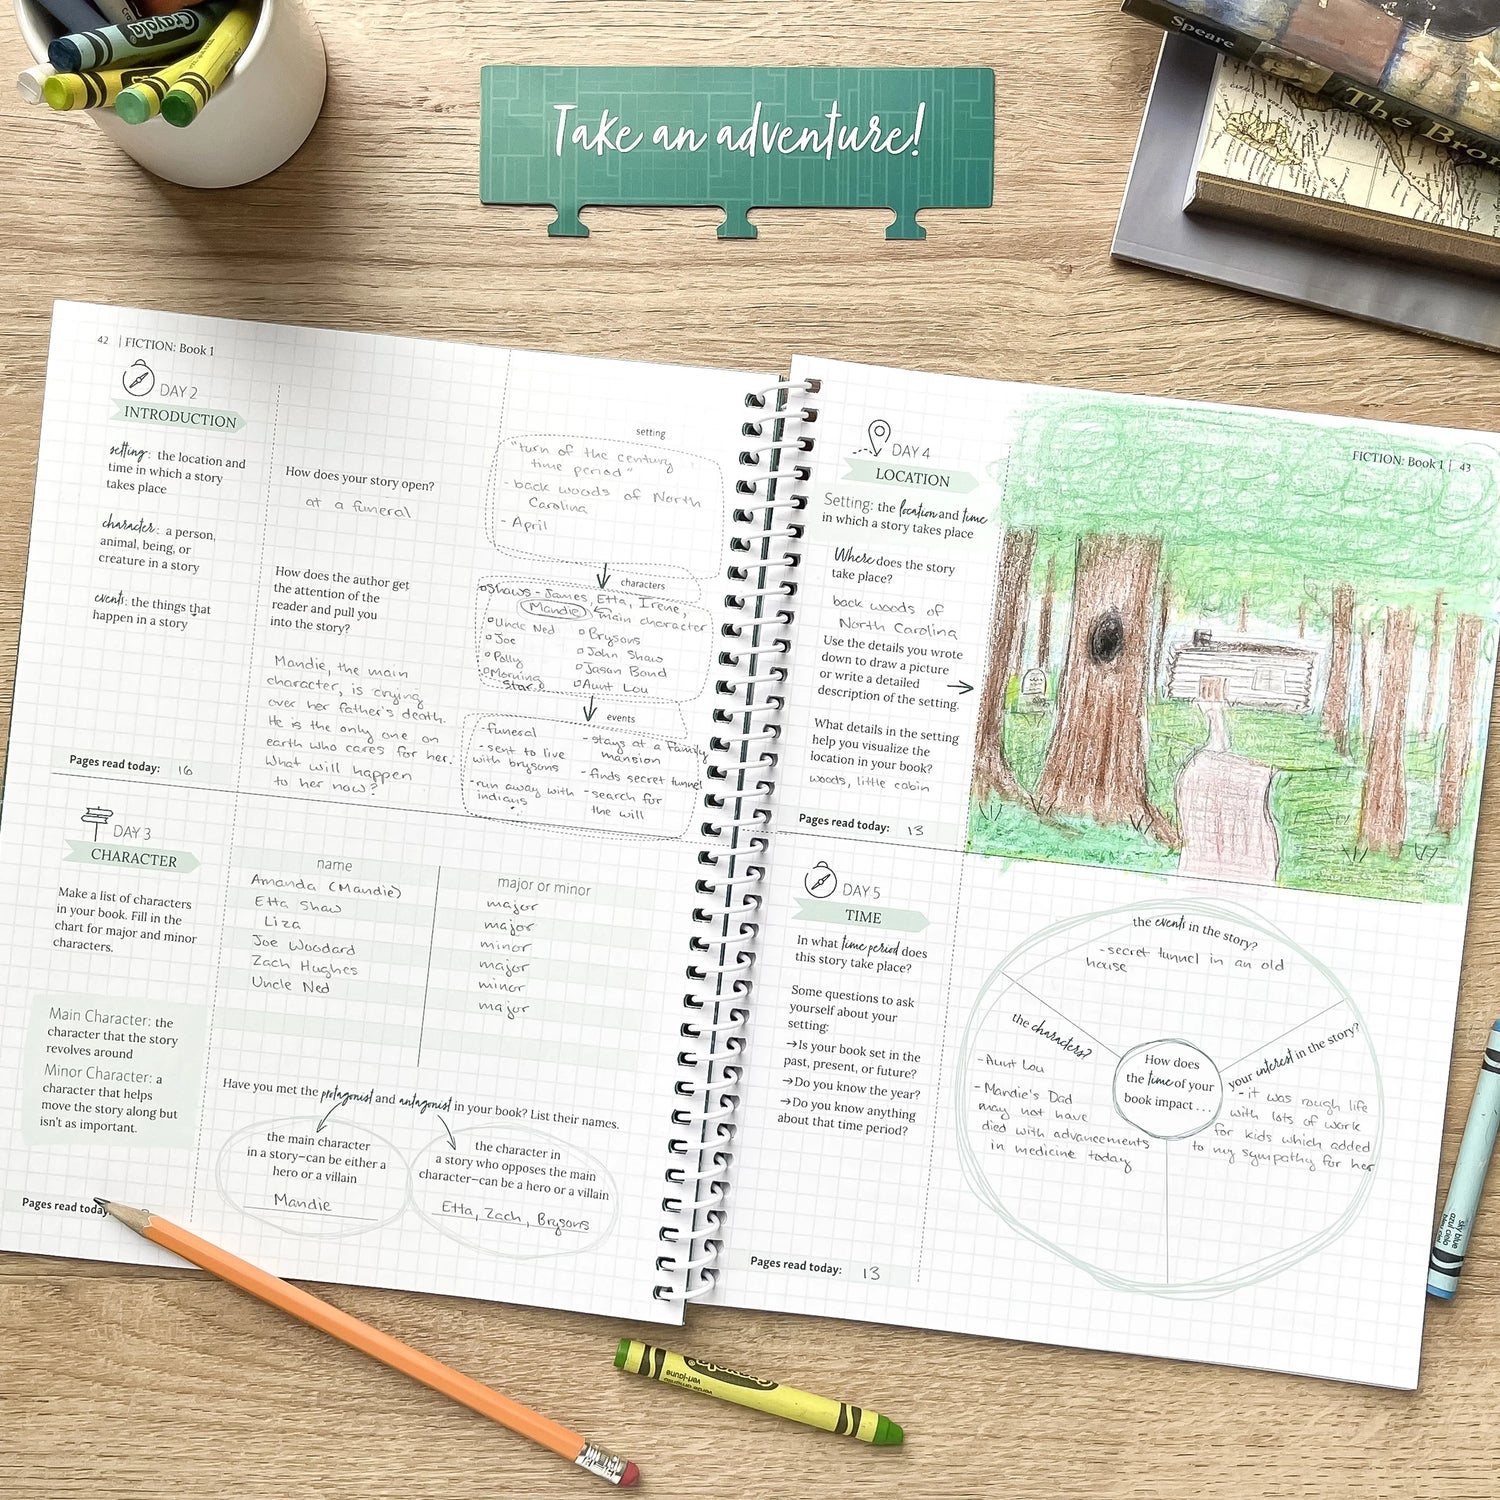 Crayola
Take an adventure!
Speare
The Bron
42 | FICTION: Book 1
DAY 2
INTRODUCTION
setting: the location and
time in which a story
takes place
character: a person,
animal, being, or
creature in a story
events: the things that
happen in a story
Pages read today: 16
How does your story open?
at a funeral
How does the author get
the attention of the
reader and pull you
into the story?
Mandie, the main
character, is crying
over her father's death.
He is the only one on
earth who cares for her.
What will happen
to her now?
setting
"turn of the century
time period"
- back woods of North
Carolina
- April
characters
Shaws - James, Etta, Irene,
Mandie main character
Uncle Ned
Joe
Polly
Morning
Star
Brysons
John Shaw
Jason Bond
Aunt Lou
events
- funeral
- sent to live
with brysons
- run away with
indians
- stays at a family
mansion
- finds secret tunnel
- search for
the will
DAY 3
CHARACTER
Make a list of characters
in your book. Fill in the
chart for major and minor
characters.
Main Character: the
character that the story
revolves around
Minor Character: a
character that helps
move the story along but
isn't as important.
Pages read today
name major or minor
Amanda (Mandie) major
Etta Shaw major
Liza minor
Joe Woodard major
Zach Hughes minor
Uncle Ned major
Have you met the protagonist and antagonist in your book? List their names.
the main character
in a story–can be either a
hero or a villain
Mandie
the character in
a story who opposes the main
character–can be a hero or a villain
Etta, Zach, Brysons
FICTION: Book 1 | 43
DAY 4
LOCATION
Setting: the location and time
in which a story takes place
Where does the story
take place?
back woods of
North Carolina
Use the details you wrote
down to draw a picture
or write a detailed
description of the setting.
What details in the setting
help you visualize the
location in your book?
woods, little cabin
Pages read today: 13
DAY 5
TIME
In what time period does
this story take place?
Some questions to ask
yourself about your
setting:
→Is your book set in the
past, present, or future?
→Do you know the year?
→Do you know anything
about that time period?
Pages read today: 13
the events in the story?
- secret tunnel in an old
house
the characters?
- Aunt Lou
- Mandie's Dad
may not have
died with advancements
in medicine today
How does
the time of your
book impact . . .
your interest in the story?
- it was rough life
with lots of work
for kids which added
to my sympathy for her
sky blue
azul cielo
Crayola
vert-jaune